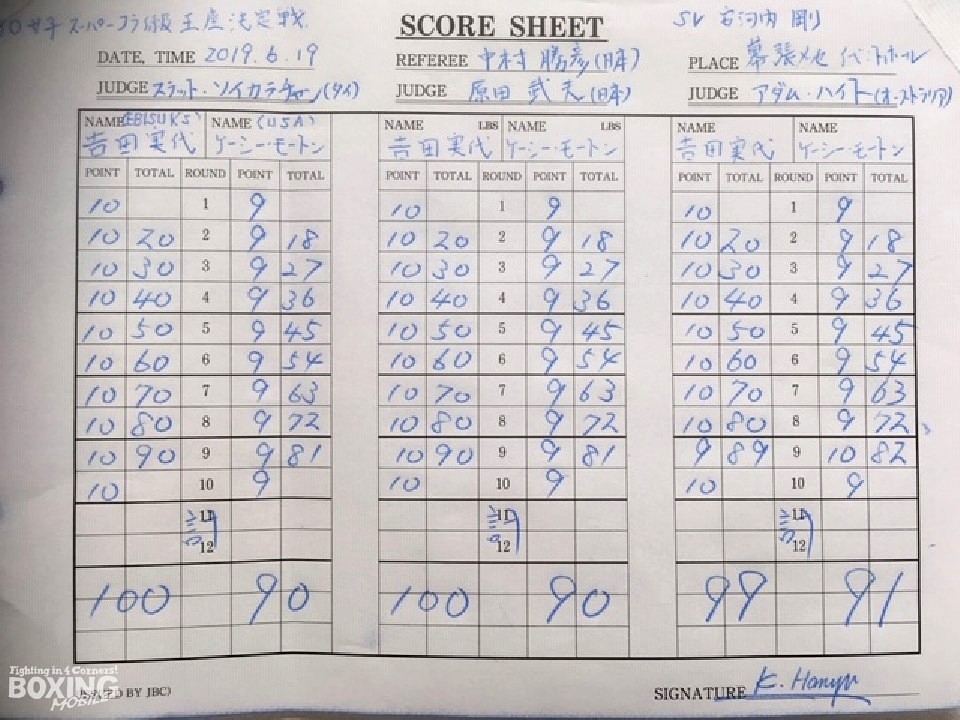 O 女子 スーパーフライ級 王座決定戦
SCORE SHEET
SV 石河内 剛
DATE, TIME 2019.6.19
REFEREE 中村 勝彦(日本)
PLACE 幕張メッセ イベントホール
JUDGE スラット・ソイカラチャン(タイ)
JUDGE 原田 武夫(日本)
JUDGE アダム・ハイト(オーストラリア)
NAME (EBISU K'S) NAME (USA) NAME LBS NAME LBS NAME NAME
吉田 実代 ケーシー・モートン 吉田 実代 ケーシー・モートン 吉田 実代 ケーシー・モートン
POINT TOTAL ROUND POINT TOTAL POINT TOTAL ROUND POINT TOTAL POINT TOTAL ROUND POINT TOTAL
10 1 9 10 1 9 10 1 9
10 20 2 9 18 10 20 2 9 18 10 20 2 9 18
10 30 3 9 27 10 30 3 9 27 10 30 3 9 27
10 40 4 9 36 10 40 4 9 36 10 40 4 9 36
10 50 5 9 45 10 50 5 9 45 10 50 5 9 45
10 60 6 9 54 10 60 6 9 54 10 60 6 9 54
10 70 7 9 63 10 70 7 9 63 10 70 7 9 63
10 80 8 9 72 10 80 8 9 72 10 80 8 9 72
10 90 9 9 81 10 90 9 9 81 9 89 9 10 82
10 10 9 10 10 9 10 10 9
11 11 11
12 12 12
100 90 100 90 99 91
Fighting in 4 Corners!
BOXING
MOBILE
BY JBC)
SIGNATURE